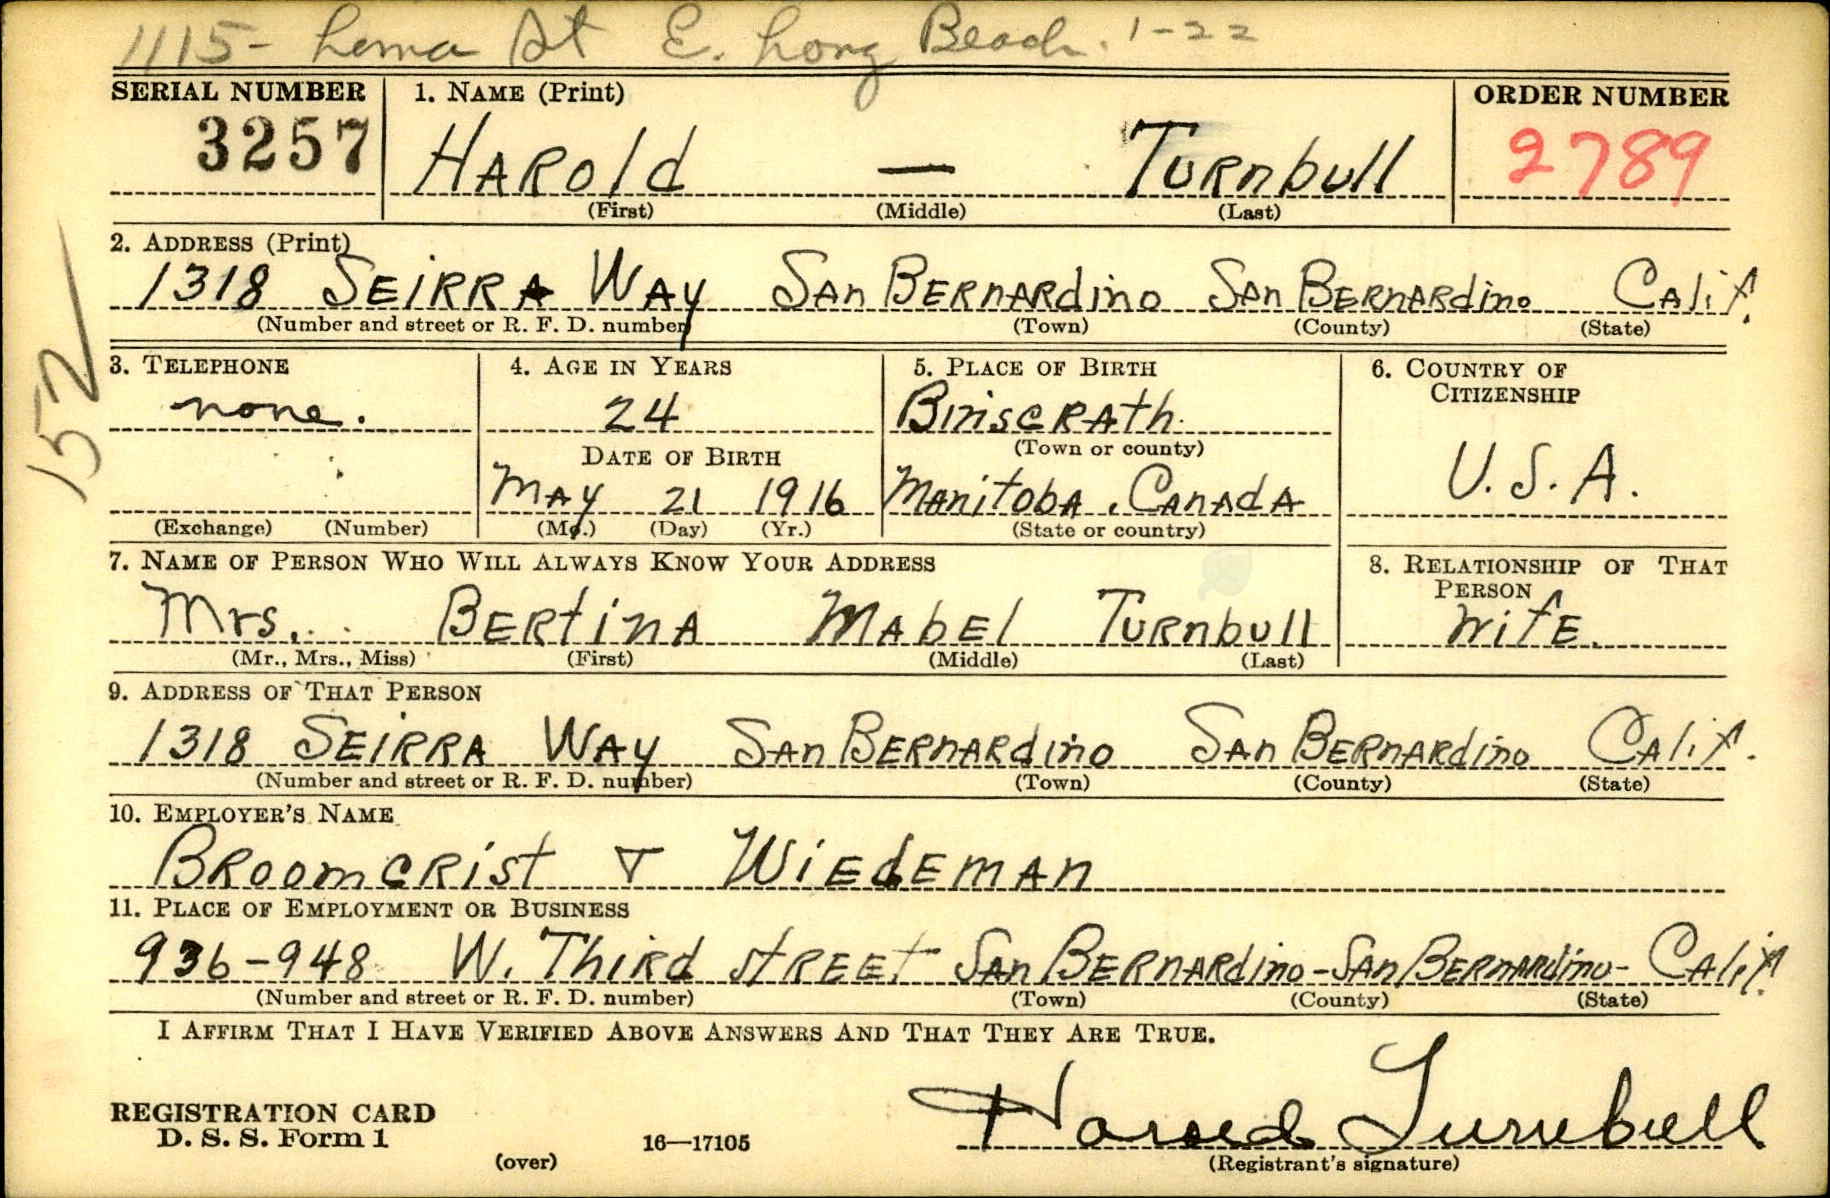 1115- Loma St E. Long Beach. 1-22
SERIAL NUMBER 1. NAME (Print) ORDER NUMBER
3257 HAROld — TURnbull 2789
(First) (Middle) (Last)
2. ADDRESS (Print)
1318 SEIRRA WAy SAn BERNARdino SAn BERNARdino CAlif.
(Number and street or R. F. D. number) (Town) (County) (State)
152
3. TELEPHONE 4. AGE IN YEARS 5. PLACE OF BIRTH 6. COUNTRY OF CITIZENSHIP
none. 24 BiniscRAth
DATE OF BIRTH (Town or county)
MAy 21 1916 MAnitobA, CAnAdA U.S.A.
(Exchange) (Number) (Mo.) (Day) (Yr.) (State or country)
7. NAME OF PERSON WHO WILL ALWAYS KNOW YOUR ADDRESS 8. RELATIONSHIP OF THAT PERSON
Mrs. BERtinA MAbEl TURnbull wifE.
(Mr., Mrs., Miss) (First) (Middle) (Last)
9. ADDRESS OF THAT PERSON
1318 SEIRRA WAy SAn BERNARdino SAn BERNARdino CAlif.
(Number and street or R. F. D. number) (Town) (County) (State)
10. EMPLOYER'S NAME
BRoomcRist & WiEdEmAn
11. PLACE OF EMPLOYMENT OR BUSINESS
936-948 W. ThiRd stREEt SAn BERNARdino-SAn BERNARdino- CAlif.
(Number and street or R. F. D. number) (Town) (County) (State)
I AFFIRM THAT I HAVE VERIFIED ABOVE ANSWERS AND THAT THEY ARE TRUE.
REGISTRATION CARD
D. S. S. Form 1 16—17105 Harold Turnbull
(over) (Registrant's signature)